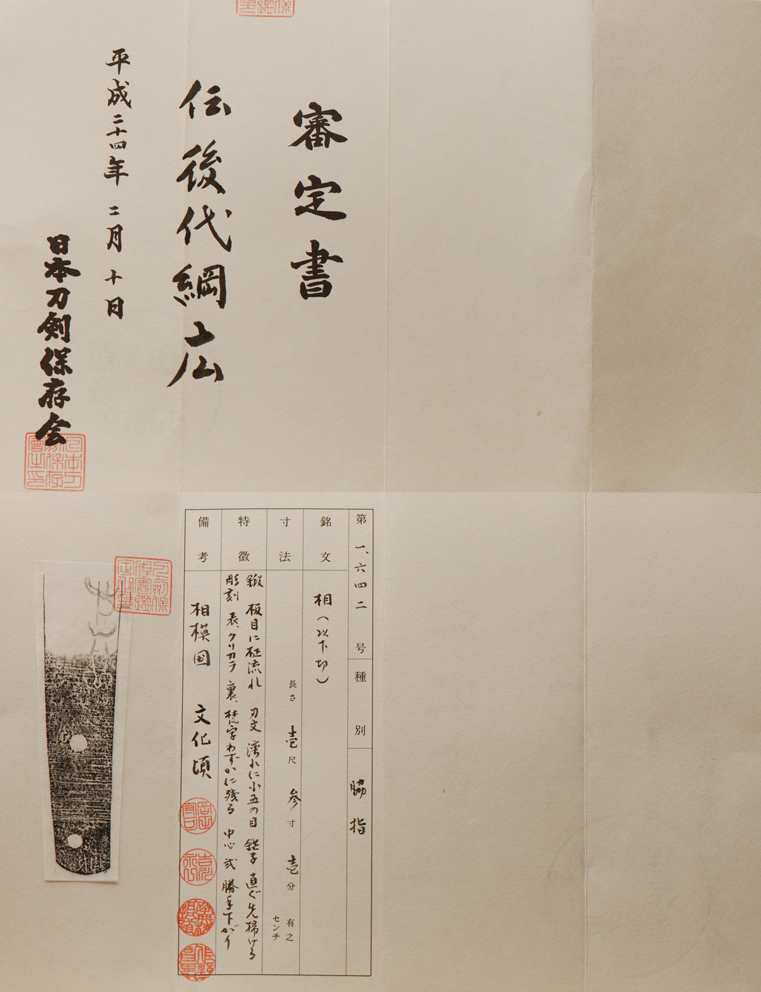 審定書
伝後代綱広
平成二十四年二月十日
日本刀剣保存会
第一、六四二号 種別 脇指
銘文 相(以下切)
寸法 長さ 壱尺 参寸 壱分 有之 センチ
特徴 鍛 板目に柾流れ 刃文 湾れに小五の目 鋩子 直ぐ先掃ける
彫刻 表、クリカラ 裏、梵字わずかに残る 中心 弐 勝手下がり
備考 相模国 文化頃